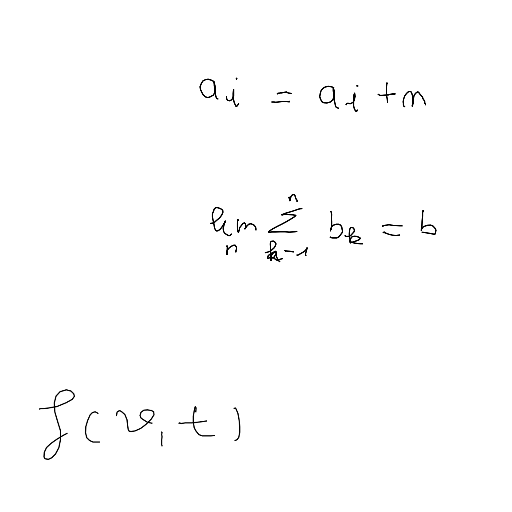 a_i = a_i + n
lim_n ∑_{k-1}^{n} b_k = b
f(v, t)